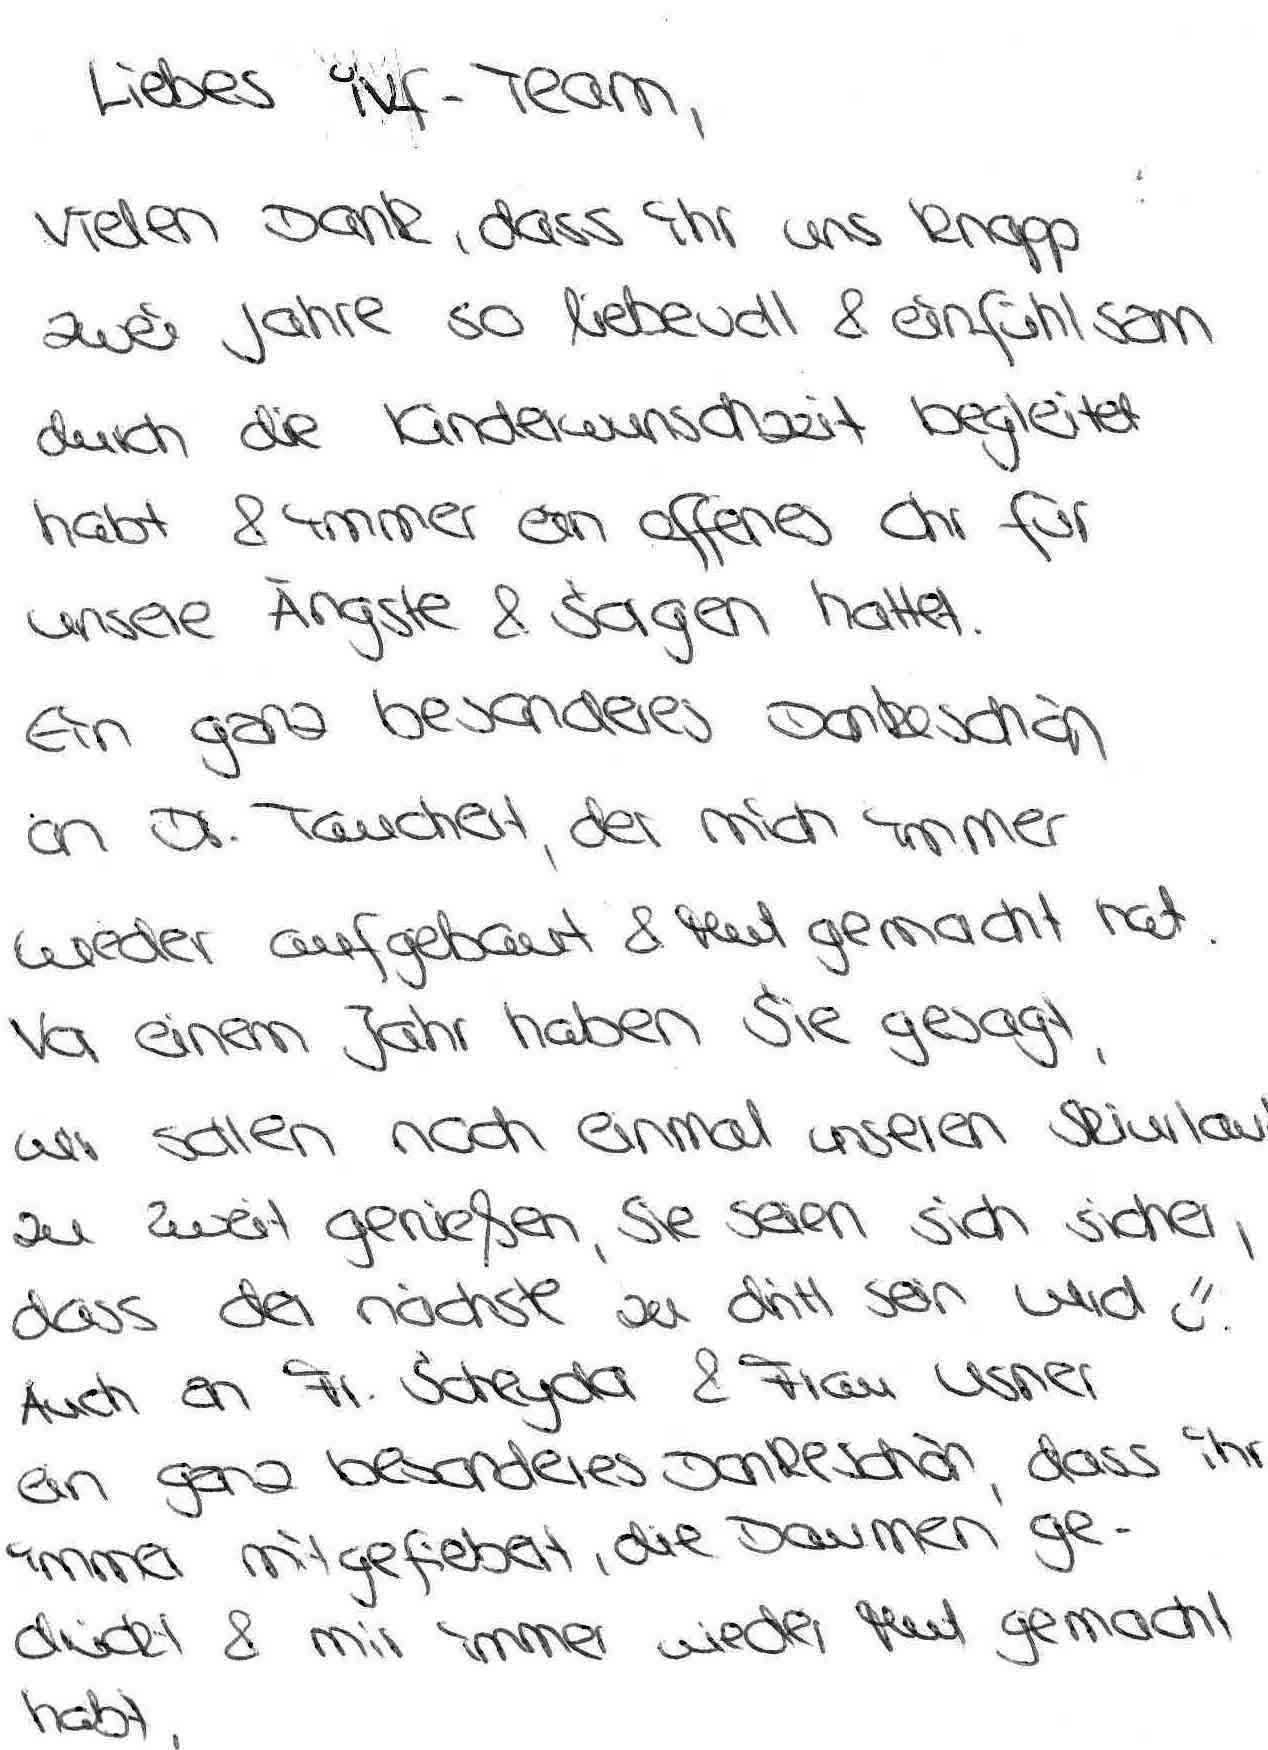 Liebes ivf-Team,
Vielen Dank, dass ihr uns knapp
zwei Jahre so liebevoll & einfühlsam
durch die Kinderwunschzeit begleitet
habt & immer ein offenes Ohr für
unsere Ängste & Sorgen hattet.
Ein ganz besonderes Dankeschön
an Dr. Tauchert, der mich immer
wieder aufgebaut & Mut gemacht hat.
Vor einem Jahr haben Sie gesagt,
wir sollen noch einmal unseren Skiurlaub
zu zweit genießen, Sie seien sich sicher,
dass der nächste zu dritt sein wird ü.
Auch an Fr. Scheyda & Frau Usner
ein ganz besonderes Dankeschön, dass ihr
immer mitgefiebert, die Daumen ge-
drückt & mir immer wieder Mut gemacht
habt.